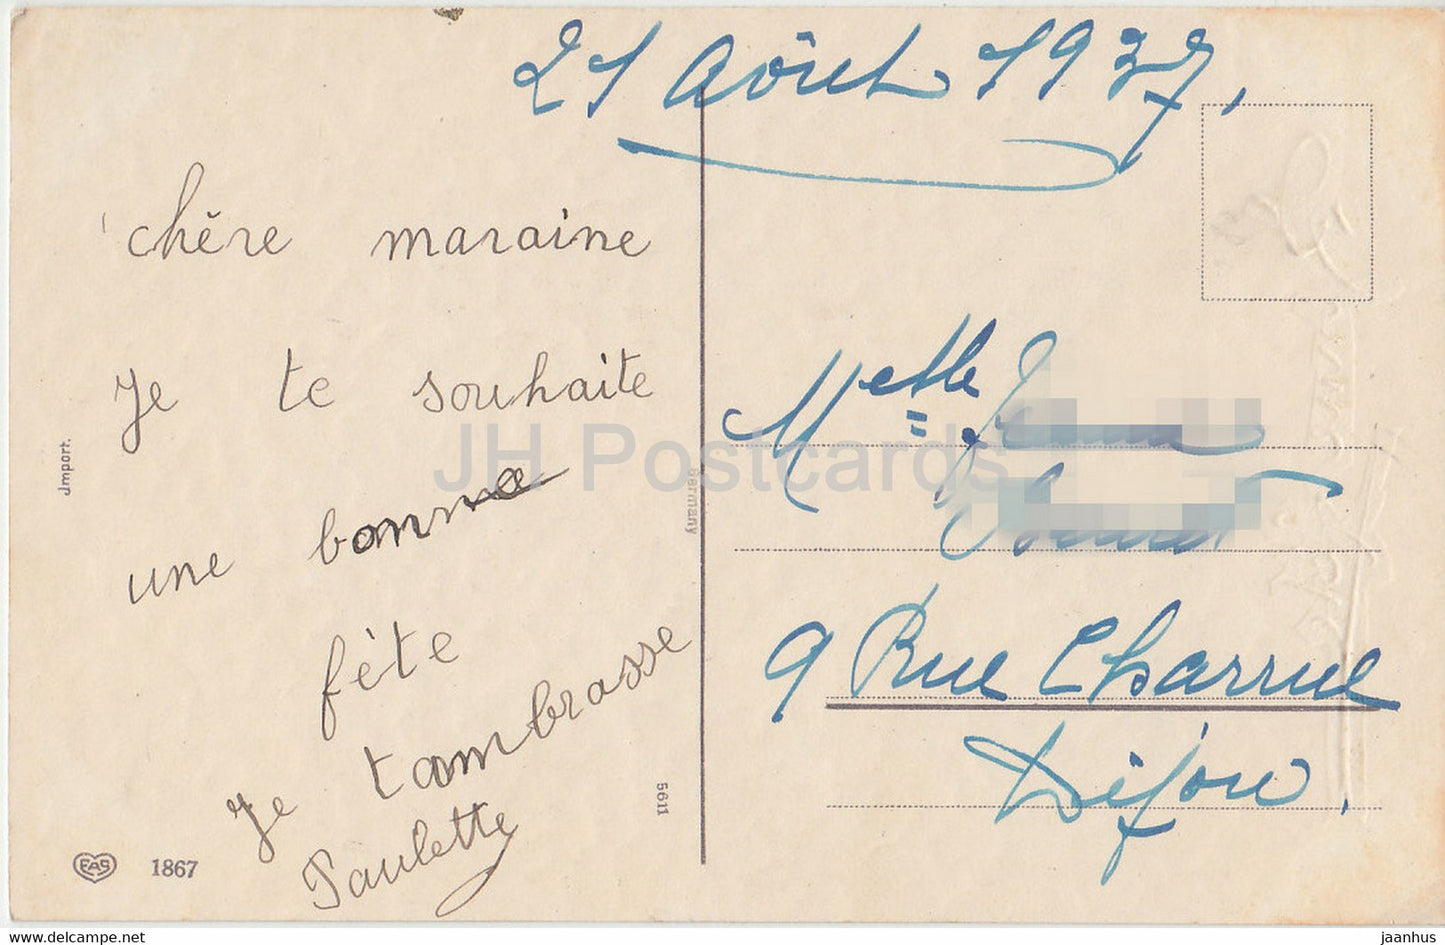 21 Aôut 1937,
chère maraine
je te souhaite
une bonne
fète
je tambrasse
Paulette
Melle
9 Rue Charrue
Dijon.
Jmport.
Germany
5611
EAS 1867
JH Postcards
www.delcampe.net
jaanhus